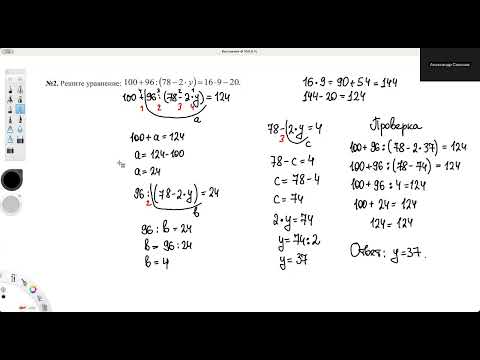 №2. Решите уравнение: 100 + 96 : (78 − 2 · y) = 16 · 9 − 20.
100 + 96 : (78 − 2 · y) = 124
1 2 3 4
a
100 + a = 124
a = 124 - 100
a = 24
96 : (78 − 2 · y) = 24
2
b
96 : b = 24
b = 96 : 24
b = 4
78 − 2 · y = 4
3
c
78 − c = 4
c = 78 − 4
c = 74
2 · y = 74
y = 74 : 2
y = 37
16 · 9 = 90 + 54 = 144
144 − 20 = 124
Проверка
100 + 96 : (78 − 2 · 37) = 124
100 + 96 : (78 − 74) = 124
100 + 96 : 4 = 124
100 + 24 = 124
124 = 124
Ответ: y = 37.